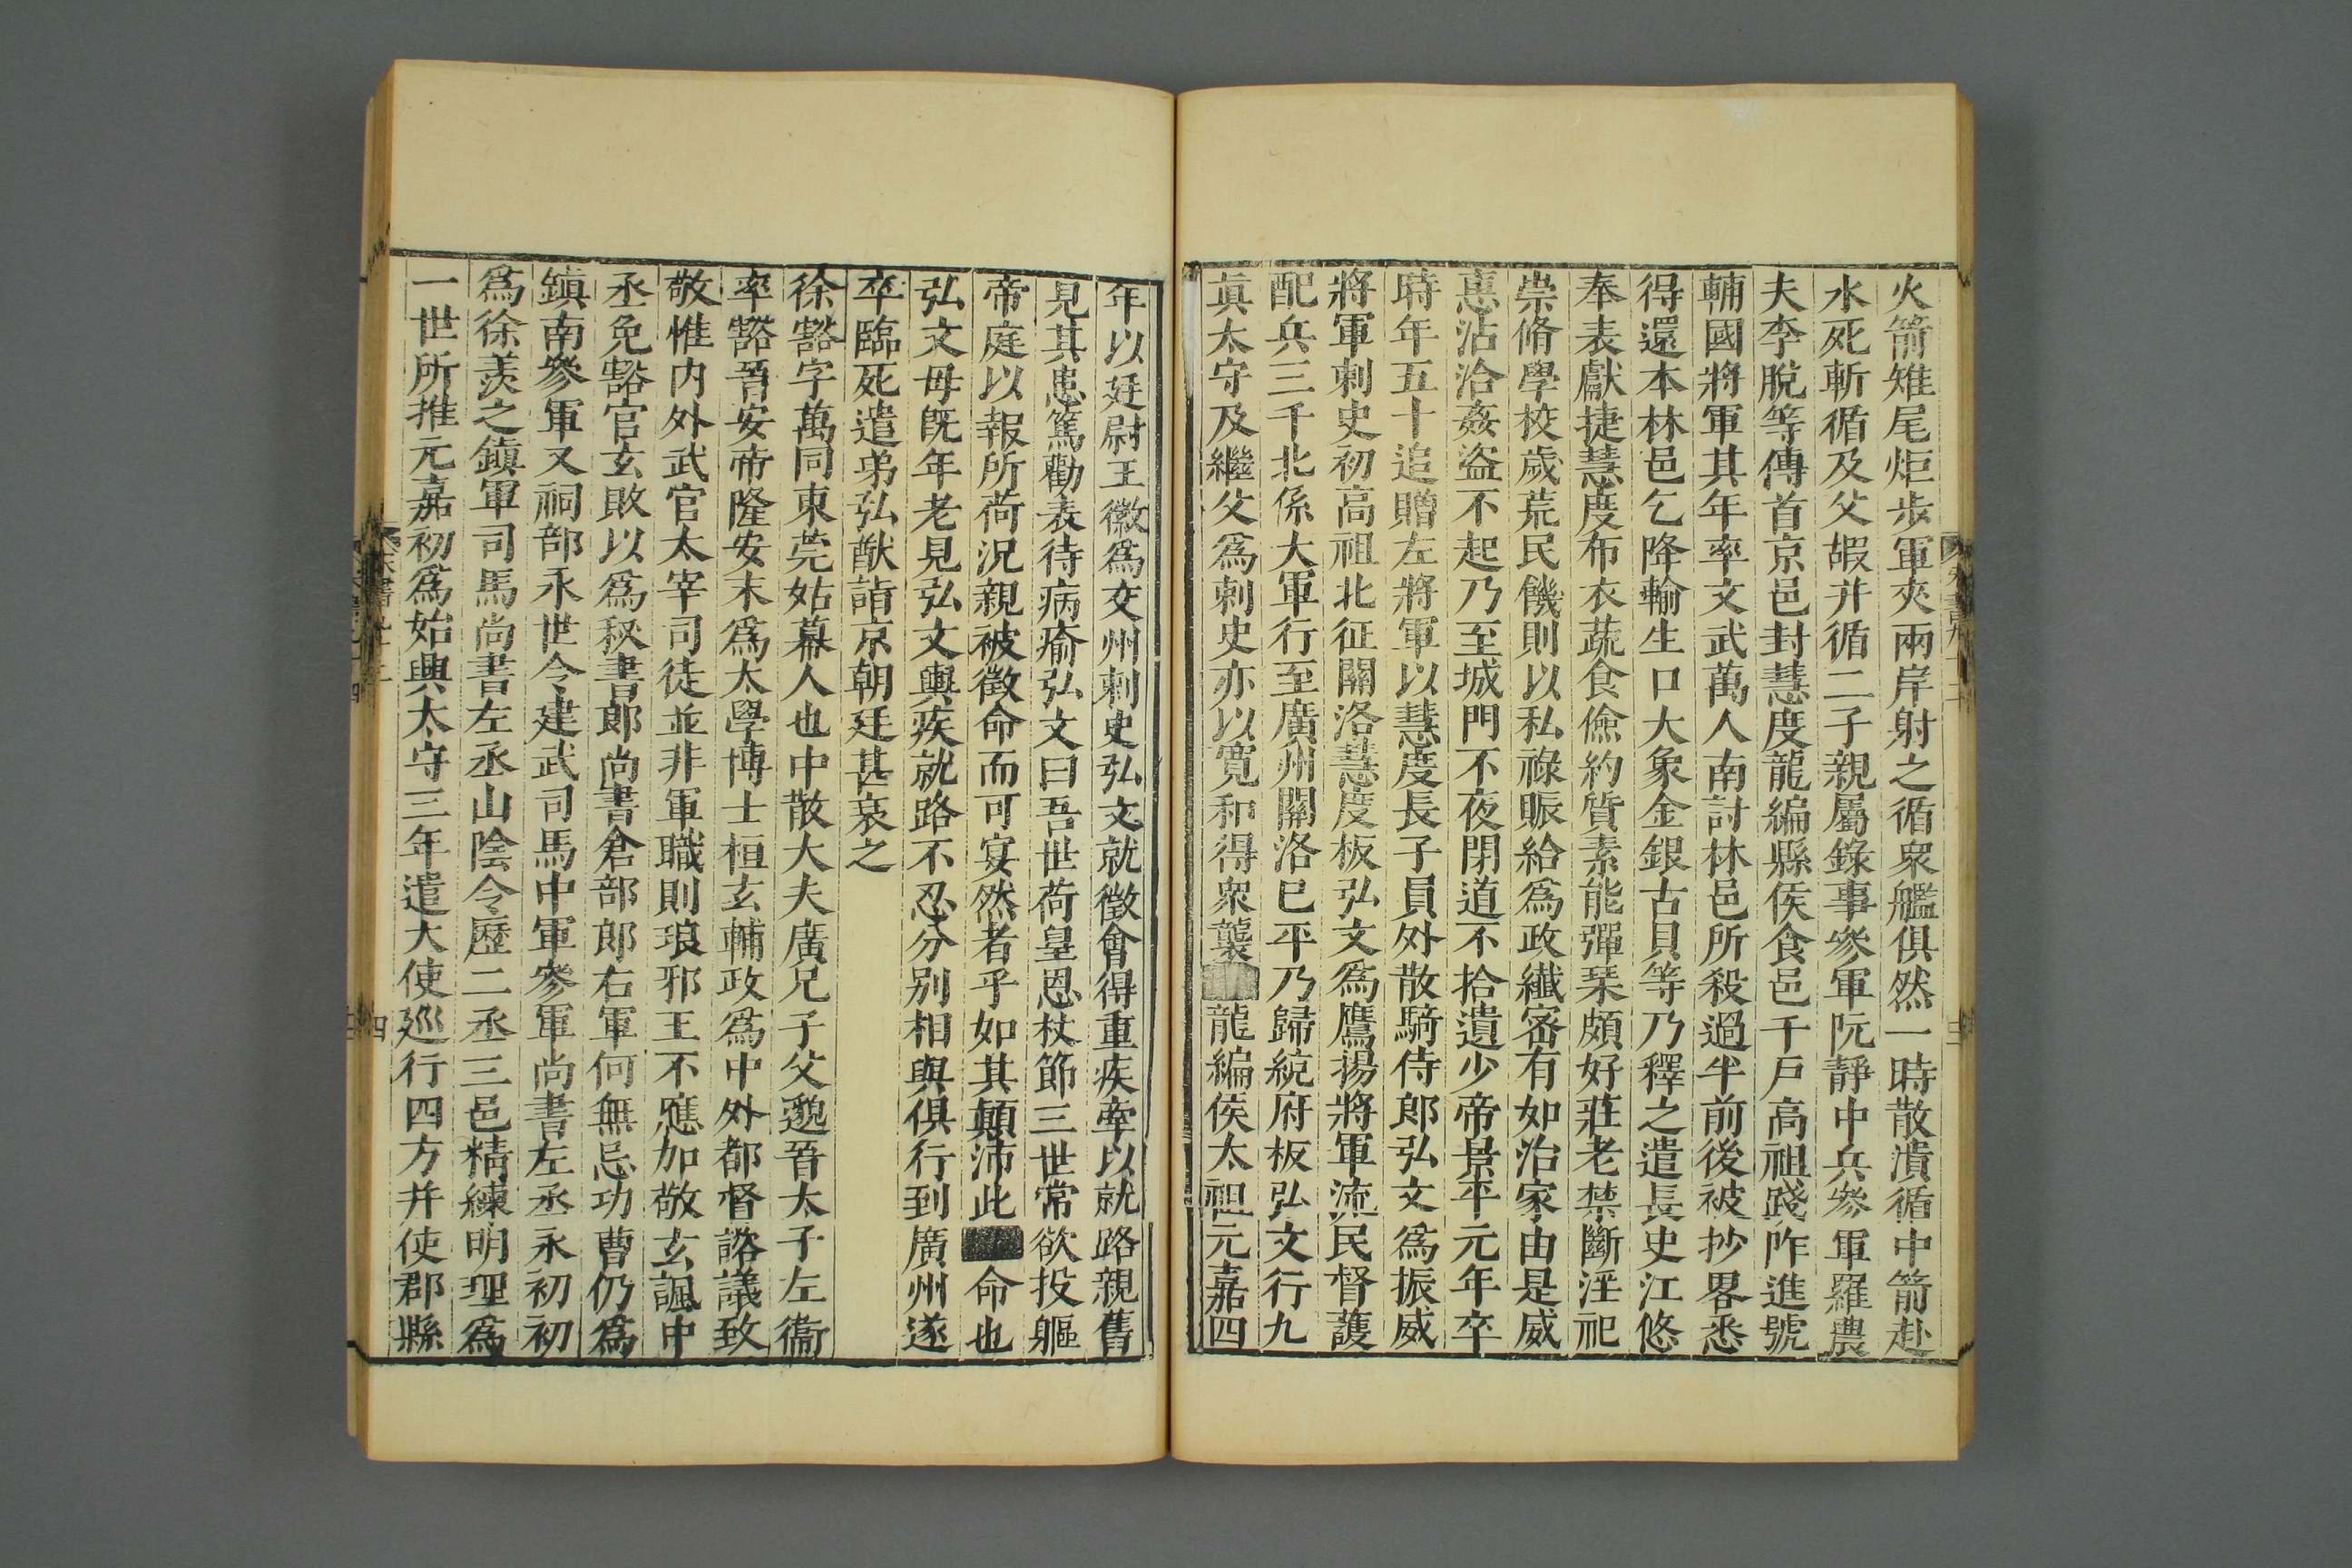 火箭雉尾炬步軍夾兩岸射之循衆艦俱然一時散潰循中箭赴
水死斬循及父嘏并循二子親屬錄事參軍阮靜中兵參軍羅農
夫李脫等傳首京邑封慧度龍編縣侯食邑千戶高祖踐阼進號
輔國將軍其年率文武萬人南討林邑所殺過半前後被抄畧悉
得還本林邑乞降輸生口大象金銀古貝等乃釋之遣長史江悠
奉表獻捷慧度布衣蔬食儉約質素能彈琹頗好莊老禁斷淫祀
崇脩學校歲荒民饑則以私祿賑給爲政纎密有如治家由是威
惠沾洽姦盜不起乃至城門不夜閉道不拾遺少帝景平元年卒
時年五十追贈左將軍以慧度長子員外散騎侍郎弘文爲振威
將軍刺史初高祖北征關洛慧度板弘文爲鷹揚將軍流民督護
配兵三千北係大軍行至廣州關洛巳平乃歸統府板弘文行九
眞太守及繼父爲刺史亦以寬和得衆襲龍編侯太祖元嘉四
年以廷尉王徽爲交州刺史弘文就徵會得重疾牽以就路親舊
見其患篤勸表待病瘉弘文曰吾世荷皇恩杖節三世常欲投軀
帝庭以報所荷況親被徵命而可宴然者乎如其顛沛此命也
弘文母旣年老見弘文輿疾就路不忍分別相與俱行到廣州遂
卒臨死遣弟弘猷詣京朝廷甚哀之
徐豁字萬同東莞姑幕人也中散大夫廣兄子父邈晉太子左衞
率豁晉安帝隆安末爲太學博士桓玄輔政爲中外都督諮議致
敬惟內外武官太宰司徒並非軍職則琅邪王不應加敬玄諷中
丞免豁官玄敗以爲秘書郎尚書倉部郎右軍何無忌功曹仍爲
鎮南參軍又祠部永世令建武司馬中軍參軍尚書左丞永初初
爲徐羨之鎮軍司馬尚書左丞山陰令歷二丞三邑精練明理爲
一世所推元嘉初爲始興太守三年遣大使廵行四方并使郡縣
四